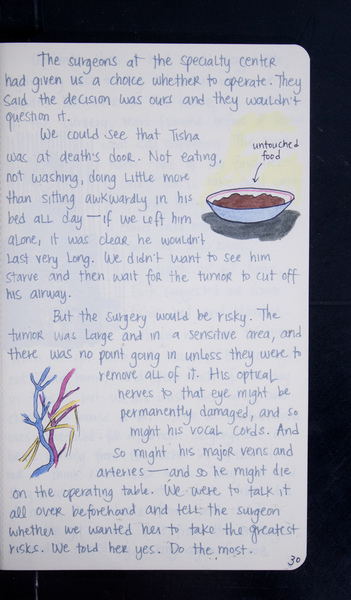 The surgeons at the specialty center
had given us a choice whether to operate. They
said the decision was ours and they wouldn't
question it.
We could see that Tisha
was at death's door. Not eating,
not washing, doing little more
than sitting awkwardly in his
bed all day — if we left him
alone, it was clear he wouldn't
last very long. We didn't want to see him
starve and then wait for the tumor to cut off
his airway.
untouched
food
But the surgery would be risky. The
tumor was large and in a sensitive area, and
there was no point going in unless they were to
remove all of it. His optical
nerves to that eye might be
permanently damaged, and so
might his vocal cords. And
so might his major veins and
arteries — and so he might die
on the operating table. We were to talk it
all over beforehand and tell the surgeon
whether we wanted her to take the greatest
risks. We told her yes. Do the most.
30